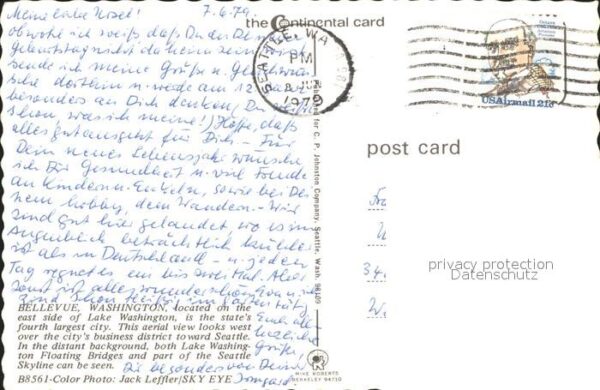 7.6.79.
the Continental card
Meine liebe Rosel!
obwohl ich weiß, daß Du an Deinem
Geburtstag nicht daheim sein wirst,
sende ich meine Grüße u. Glückwün-
sche dorthin u. werde am 12.
besonders an Dich denken, Du weißt
schon, was ich meine! Hoffe, daß
alles gut ausgeht für Dich. – Für
Dein neues Lebensjahr wünsche
ich Dir Gesundheit u. viel Freude
an Kindern u. Enkeln, sowie bei Dei-
nem hobby, dem Wandern. – Wir
sind gut hier gelandet, wo es im
Augenblick beträchtlich kühler
ist als in Deutschland – u. jeden
Tag regnet es ein bis zwei Mal. Aber
sonst ist alles wunderschön
sind schon fleißig im Garten tätig
Euch allen
herzliche
Grüße,
Dir besonders von Deiner
Irmgard
SEATTLE, WA
PM
8 JUN
1979
USAirmail 21c
post card
Published for C. P. Johnston Company, Seattle, Wash. 98109
privacy protection
Datenschutz
BELLEVUE, WASHINGTON, located on the
east side of Lake Washington, is the state's
fourth largest city. This aerial view looks west
over the city's business district toward Seattle.
In the distant background, both Lake Washing-
ton Floating Bridges and part of the Seattle
Skyline can be seen.
B8561-Color Photo: Jack Leffler/SKY EYE
MIKE ROBERTS
BERKELEY 94710